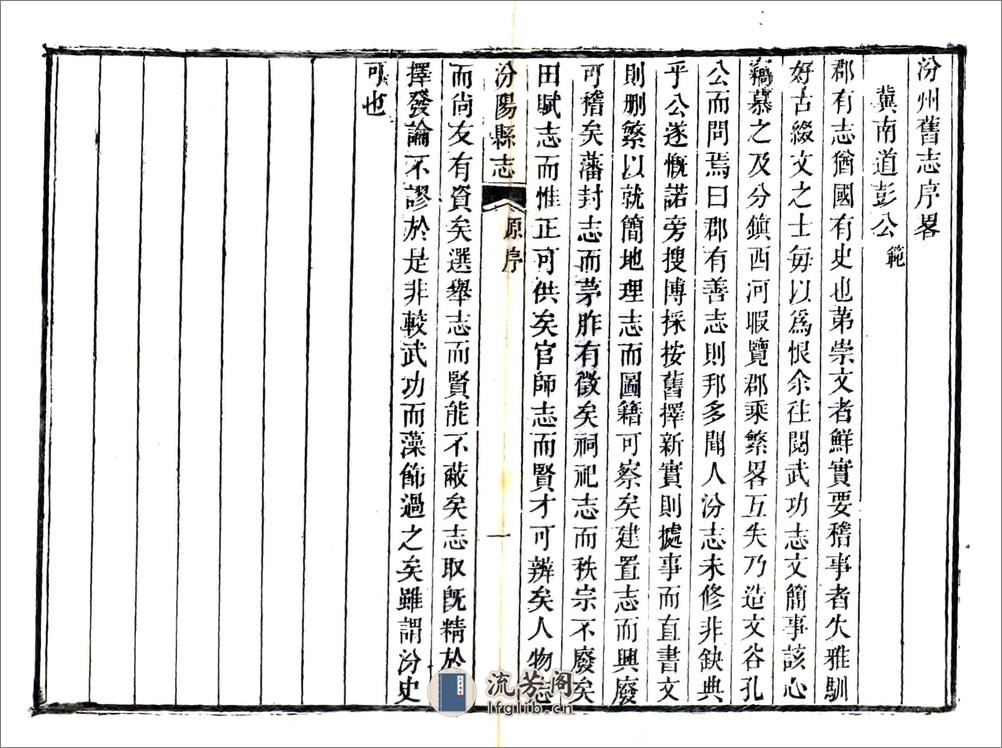 汾州舊志序畧
冀南道彭公範
郡有志猶國有史也第崇文者鮮實要稽事者失雅馴
好古綴文之士每以爲恨余往閱武功志文簡事該心
竊慕之及分鎮西河暇覽郡乘繁畧互失乃造文谷孔
公而問焉曰郡有善志則邦多聞人汾志未修非缺典
乎公遂慨諾旁搜博採按舊擇新實則摭事而直書文
則删繁以就簡地理志而圖籍可察矣建置志而興廢
可稽矣藩封志而茅胙有徵矣祠祀志而秩宗不廢矣
田賦志而惟正可供矣官師志而賢才可辨矣人物志
汾陽縣志 原序 一
而尚友有資矣選舉志而賢能不蔽矣志取旣精於
擇發論不謬於是非較武功而藻飾過之矣雖謂汾史
可也
流芳阁
lfglib.cn